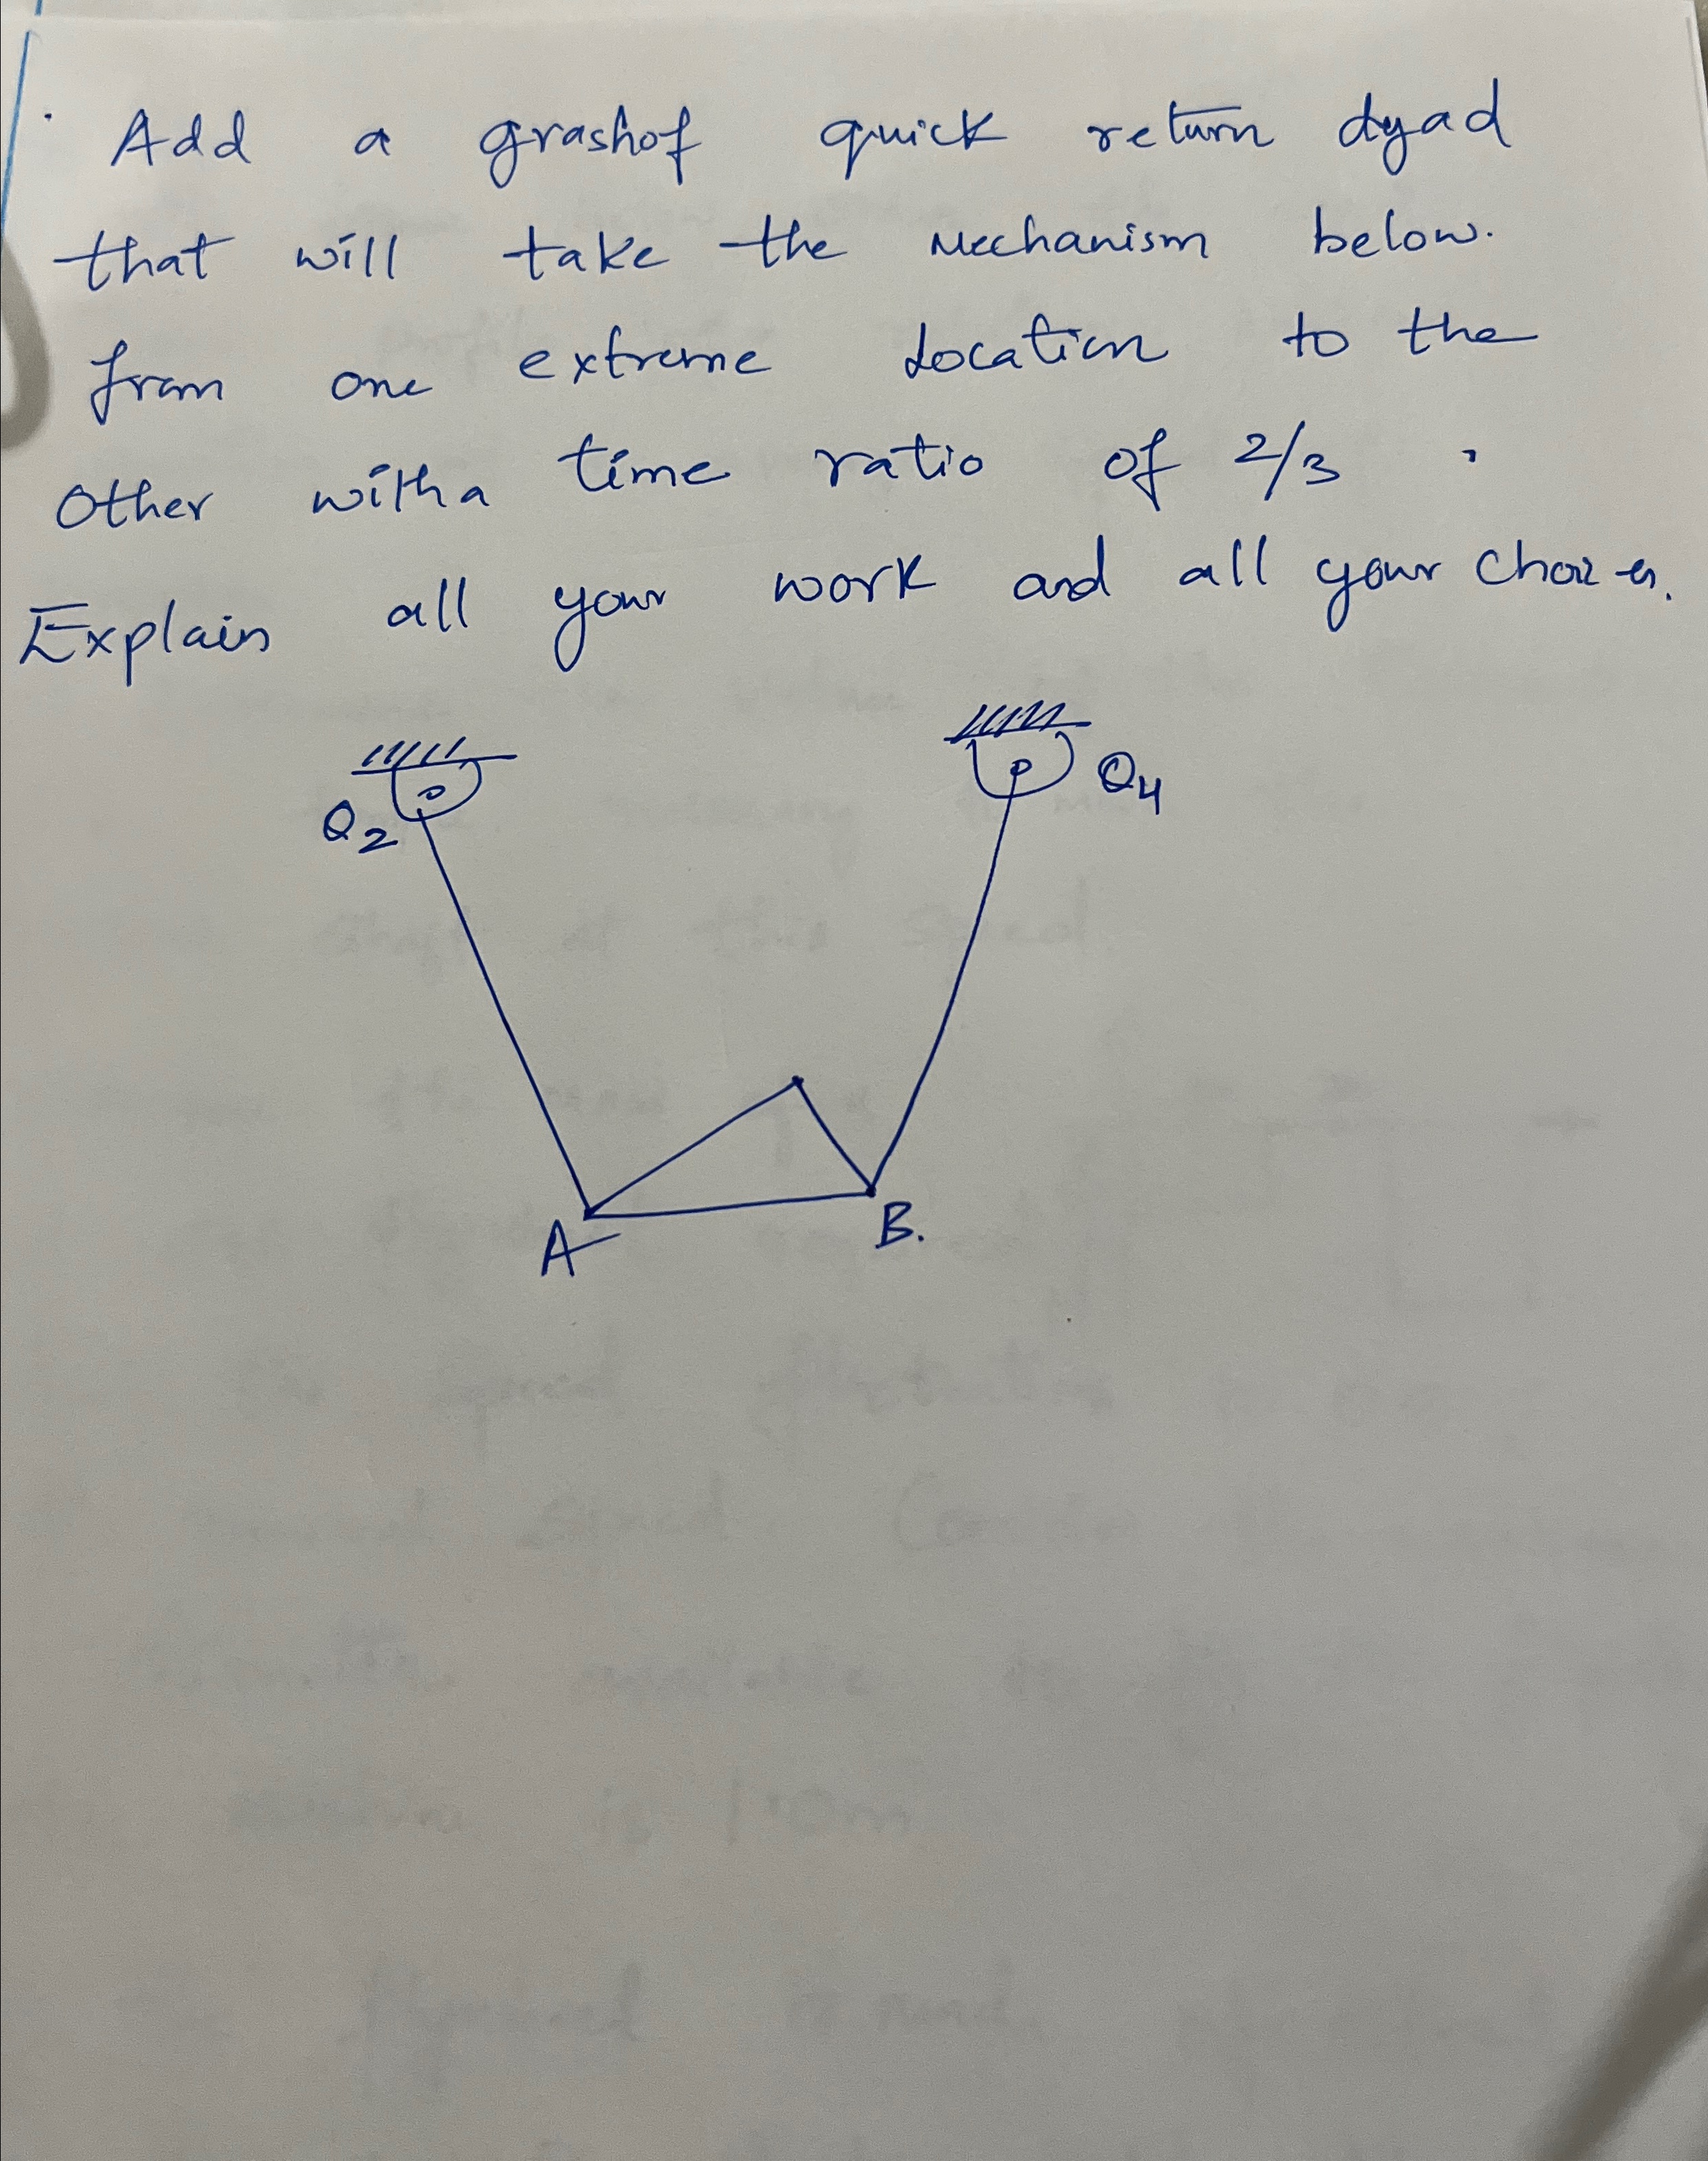 Add a grashof quick return dyad
that will take the Mechanism below.
from one extreme Location to the
Other with a time ratio of 2/3 .
Explain all your work and all your
O2
O4
A
B.